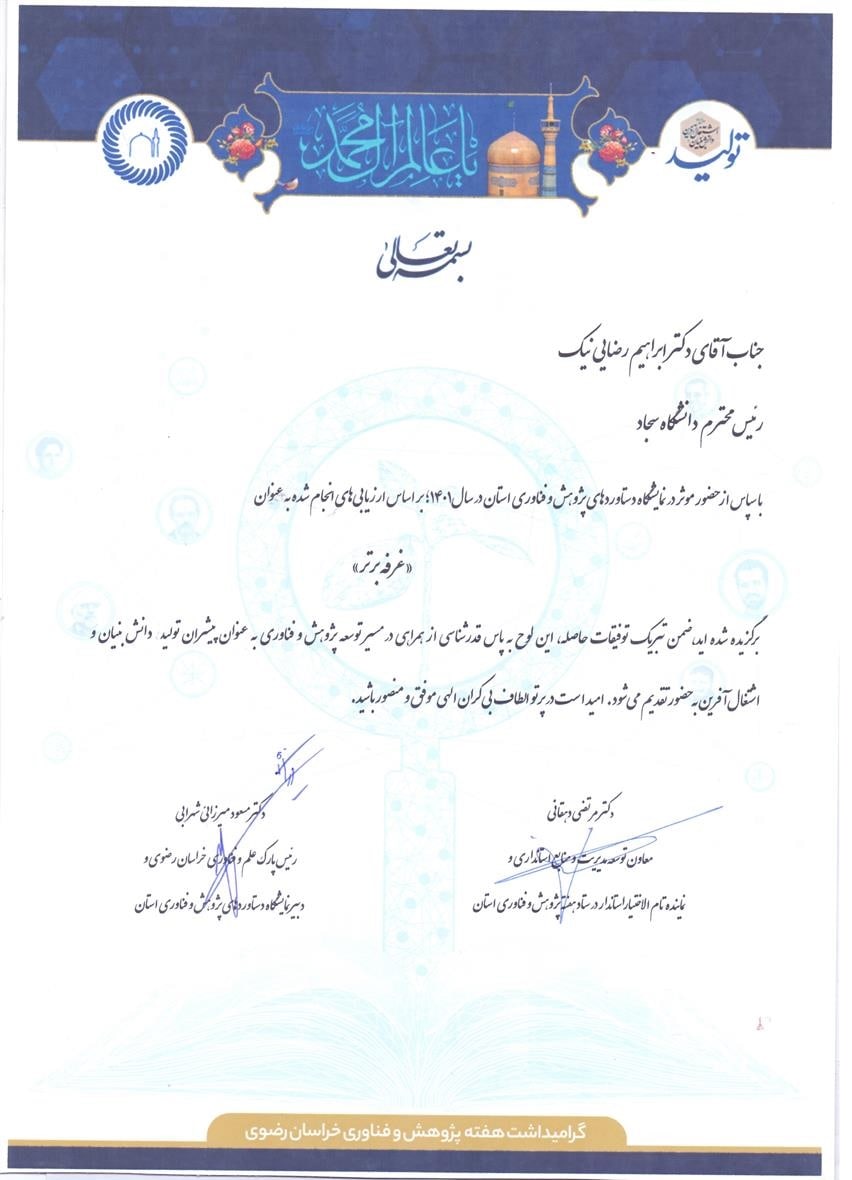 یا عالم آل محمد
تولید
دانش‌بنیان
اشتغال‌آفرین
بسمه تعالی
جناب آقای دکتر ابراهیم رضایی نیک
رئیس محترم دانشگاه سجاد
با سپاس از حضور موثر در نمایشگاه دستاوردهای پژوهش و فناوری استان در سال ۱۴۰۱؛ بر اساس ارزیابی های انجام شده به عنوان
«غرفه برتر»
برگزیده شده اید، ضمن تبریک توفیقات حاصله، این لوح به پاس قدرشناسی از همراهی در مسیر توسعه پژوهش و فناوری به عنوان پیشران تولید، دانش بنیان و
اشتغال آفرین به حضور تقدیم می شود. امید است در پرتو الطاف بی کران الهی موفق و منصور باشید.
دکتر مرتضی دهقانی
معاون توسعه مدیریت و منابع استانداری و
نماینده تام الاختیار استاندار در ستاد هفته پژوهش و فناوری استان
دکتر مسعود میرزائی شهرابی
رئیس پارک علم و فناوری خراسان رضوی و
دبیر نمایشگاه دستاوردهای پژوهش و فناوری استان
گرامیداشت هفته پژوهش و فناوری خراسان رضوی